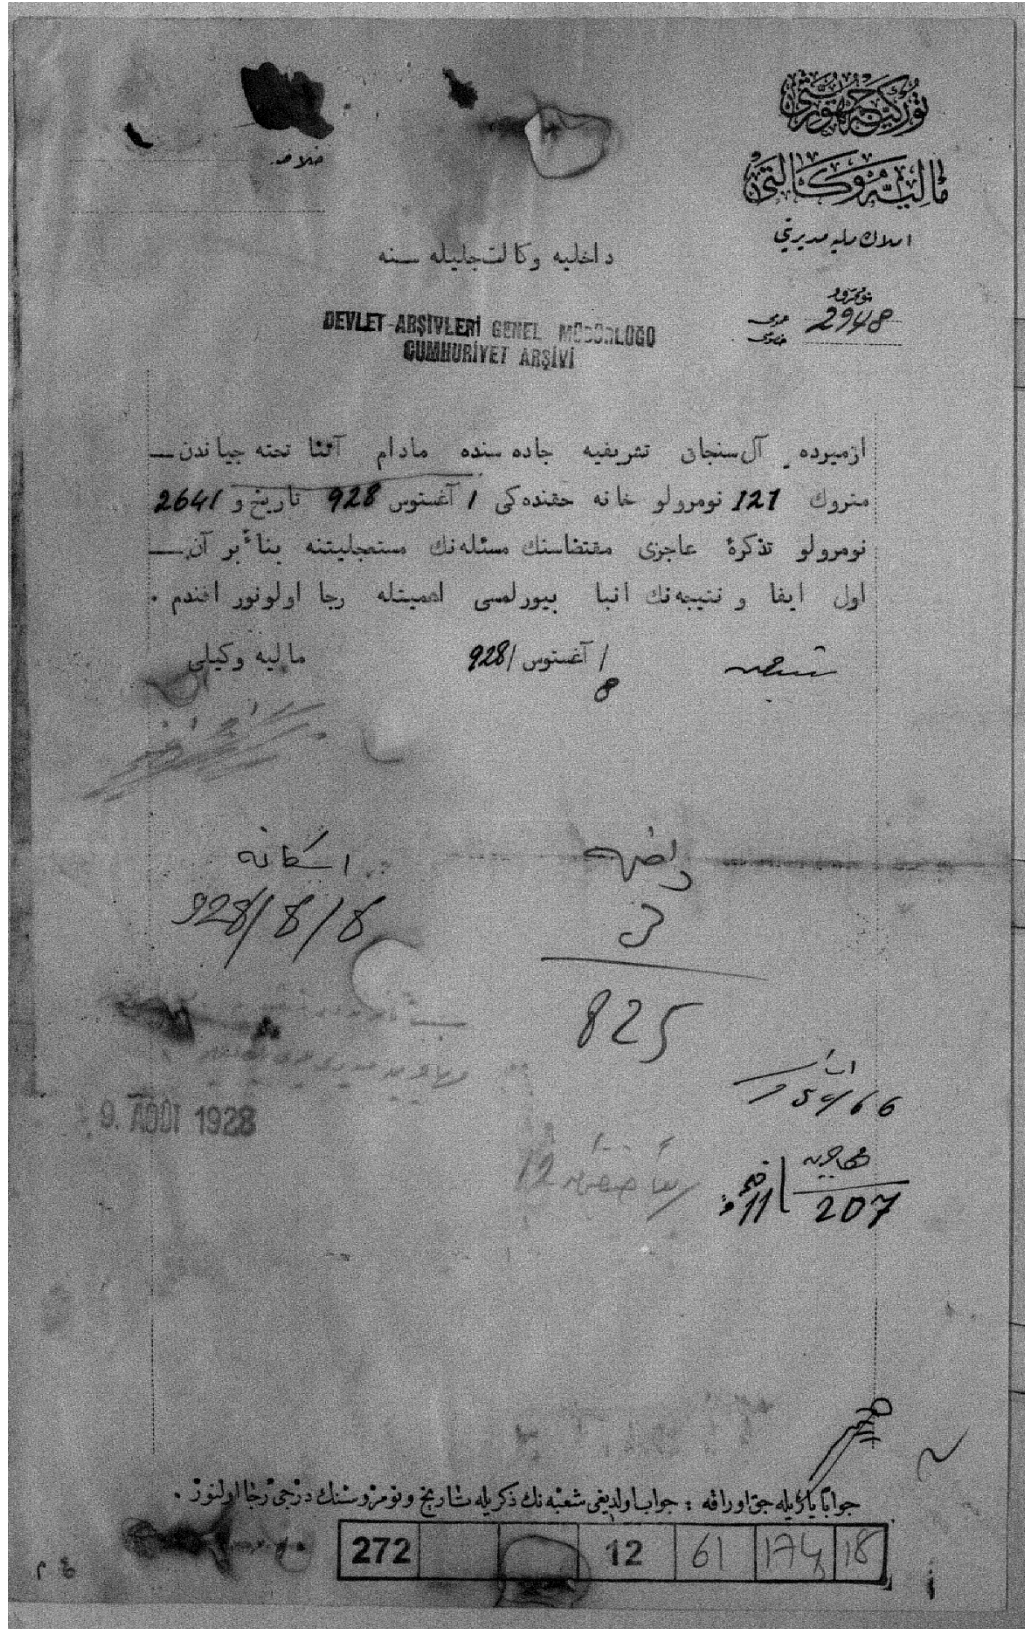 توركيه جمهوريتى
ماليه وكالتى
املاك مليه مديريتى
خلاصه
نومرو
2948
داخليه وكالت جليله سنه
DEVLET ARŞİVLERİ GENEL MÜDÜRLÜĞÜ
CUMHURİYET ARŞİVİ
ازميرده آل سنجاق تشريفيه جاده سنده مادام آننا تحته جياندن
متروك 121 نومرولو خانه حقنده كى 1 آغستوس 928 تاريخ و 2641
نومرولو تذكرۀ عاجزى مقتضاسنك مسئله نك مستعجليتنه بناءً بر آن
اول ايفا و نتيجه نك انبا بيورلمسى اهميتله رجا اولونور افندم .
8 / آغستوس / 928
ماليه وكيلى
اسكانه
928/8/8
3
825
9. AOÛT 1928
207
11
12
جواباً يازيله جق اوراقه : جواب اولديغى شعبه نك ذكريله تاريخ و نومروسنك درجى رجا اولنور .
272 12 61 174 18